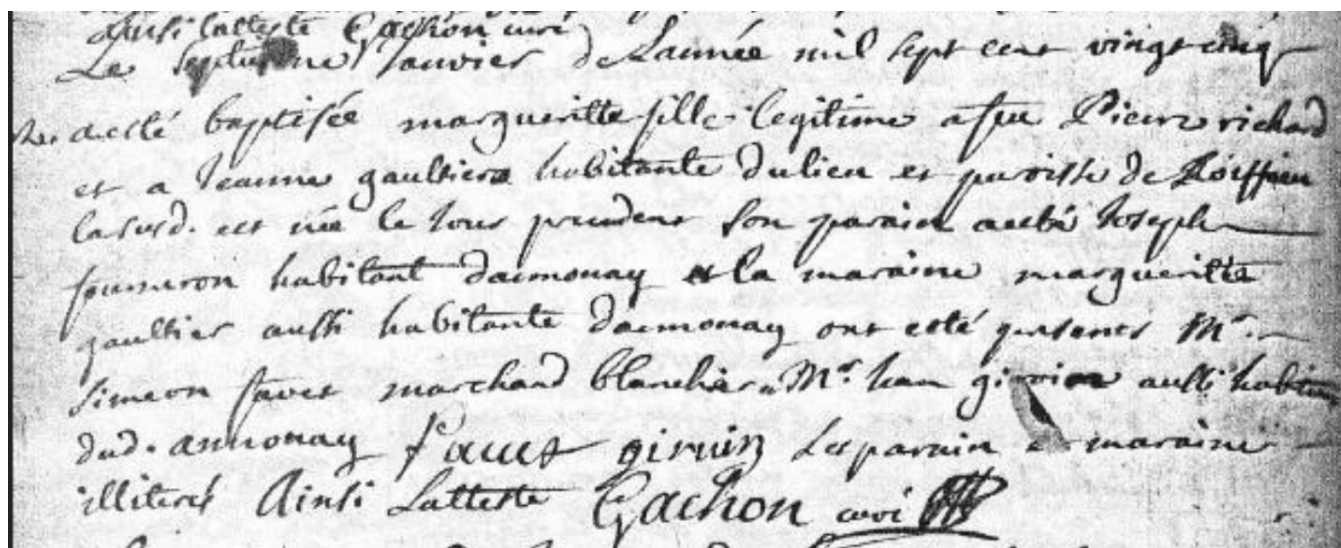 Ainsi latteste Gachon curé
Le septiesme Janvier de Lannée mil sept cent vingt cinq
a esté baptisée margueritte fille legitime a feu Pierre richard
et a Jeanne gaultiere habitante du lieu et paroisse de Roiffieu
la susd. est née le Jour precedent son parain a esté Joseph
fourneron habitant dannonay et la maraine margueritte
gaultier aussi habitante dannonay ont esté presents Mr.
simeon favet marchand blanchier Mr Jean giroin aussi habitant
dud. annonay favet giruin Les parain et maraine
illiterés Ainsi Latteste Gachon curé